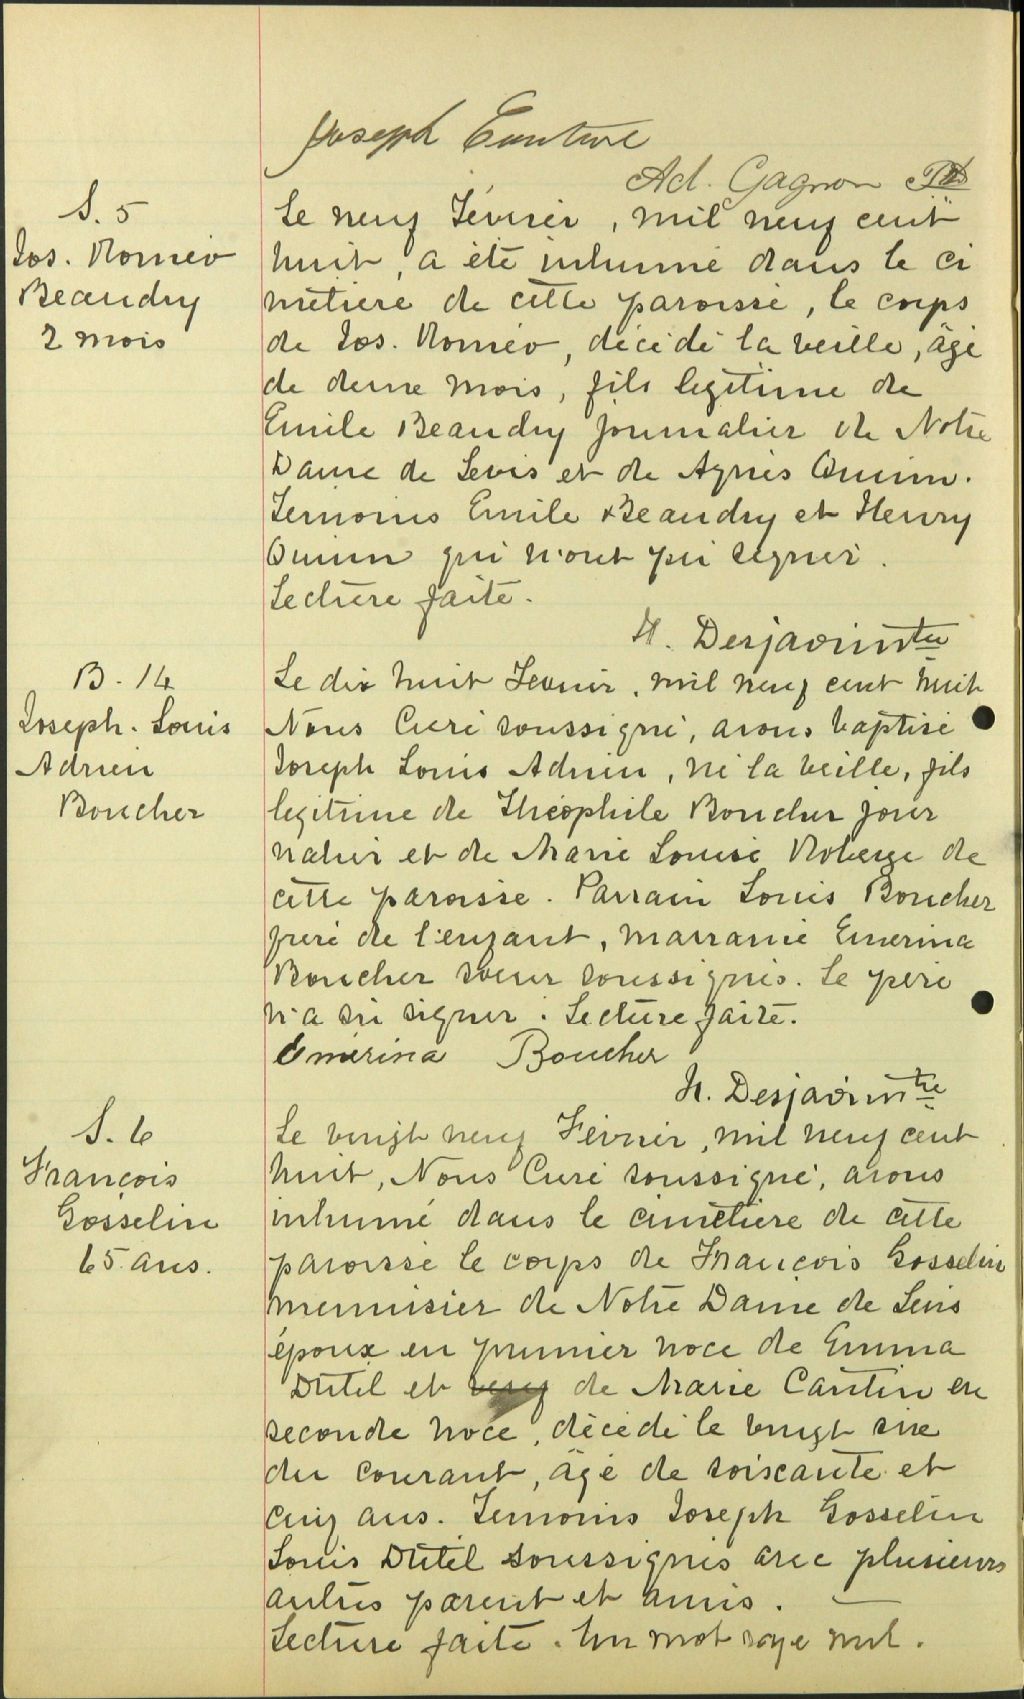 Joseph Couture
Ad. Gagnon Ptre
S. 5
Jos. Roméo
Beaudry
2 mois
Le neuf Février, mil neuf cent
huit, a été inhumé dans le ci
metière de cette paroisse, le corps
de Jos. Roméo, décédé la veille, âgé
de deux mois, fils legitime de
Emile Beaudry journalier de Notre
Dame de Levis et de Agnès Quinn.
Temoins Emile Beaudry et Henry
Quinn qui n'ont pu signer.
Lecture faite.
H. Desjardins ptre
B. 14
Joseph. Louis
Adrien
Boucher
Le dix huit Fevrier, mil neuf cent huit
Nous Curé soussigné, avons baptisé
Joseph Louis Adrien, né la veille, fils
legitime de Théophile Boucher jour
nalier et de Marie Louise Roberge de
cette paroisse. Parrain Louis Boucher
frère de l'enfant, marraine Emerina
Boucher soeur soussignés. Le père
n'a su signer. Lecture faite.
Emérina Boucher
H. Desjardins ptre
S. 6
François
Gosselin
65 ans.
Le vingt neuf Février, mil neuf cent
huit, Nous Curé soussigné, avons
inhumé dans le cimetière de cette
paroisse le corps de François Gosselin
menuisier de Notre Dame de Levis
époux en premier noce de Emma
Dutil et de Marie Cantin en
seconde noce, décédé le vingt six
du courant, âgé de soixante et
cinq ans. Temoins Joseph Gosselin
Louis Dutil soussignés avec plusieurs
autres parent et amis.
Lecture faite. Un mot rayé nul.